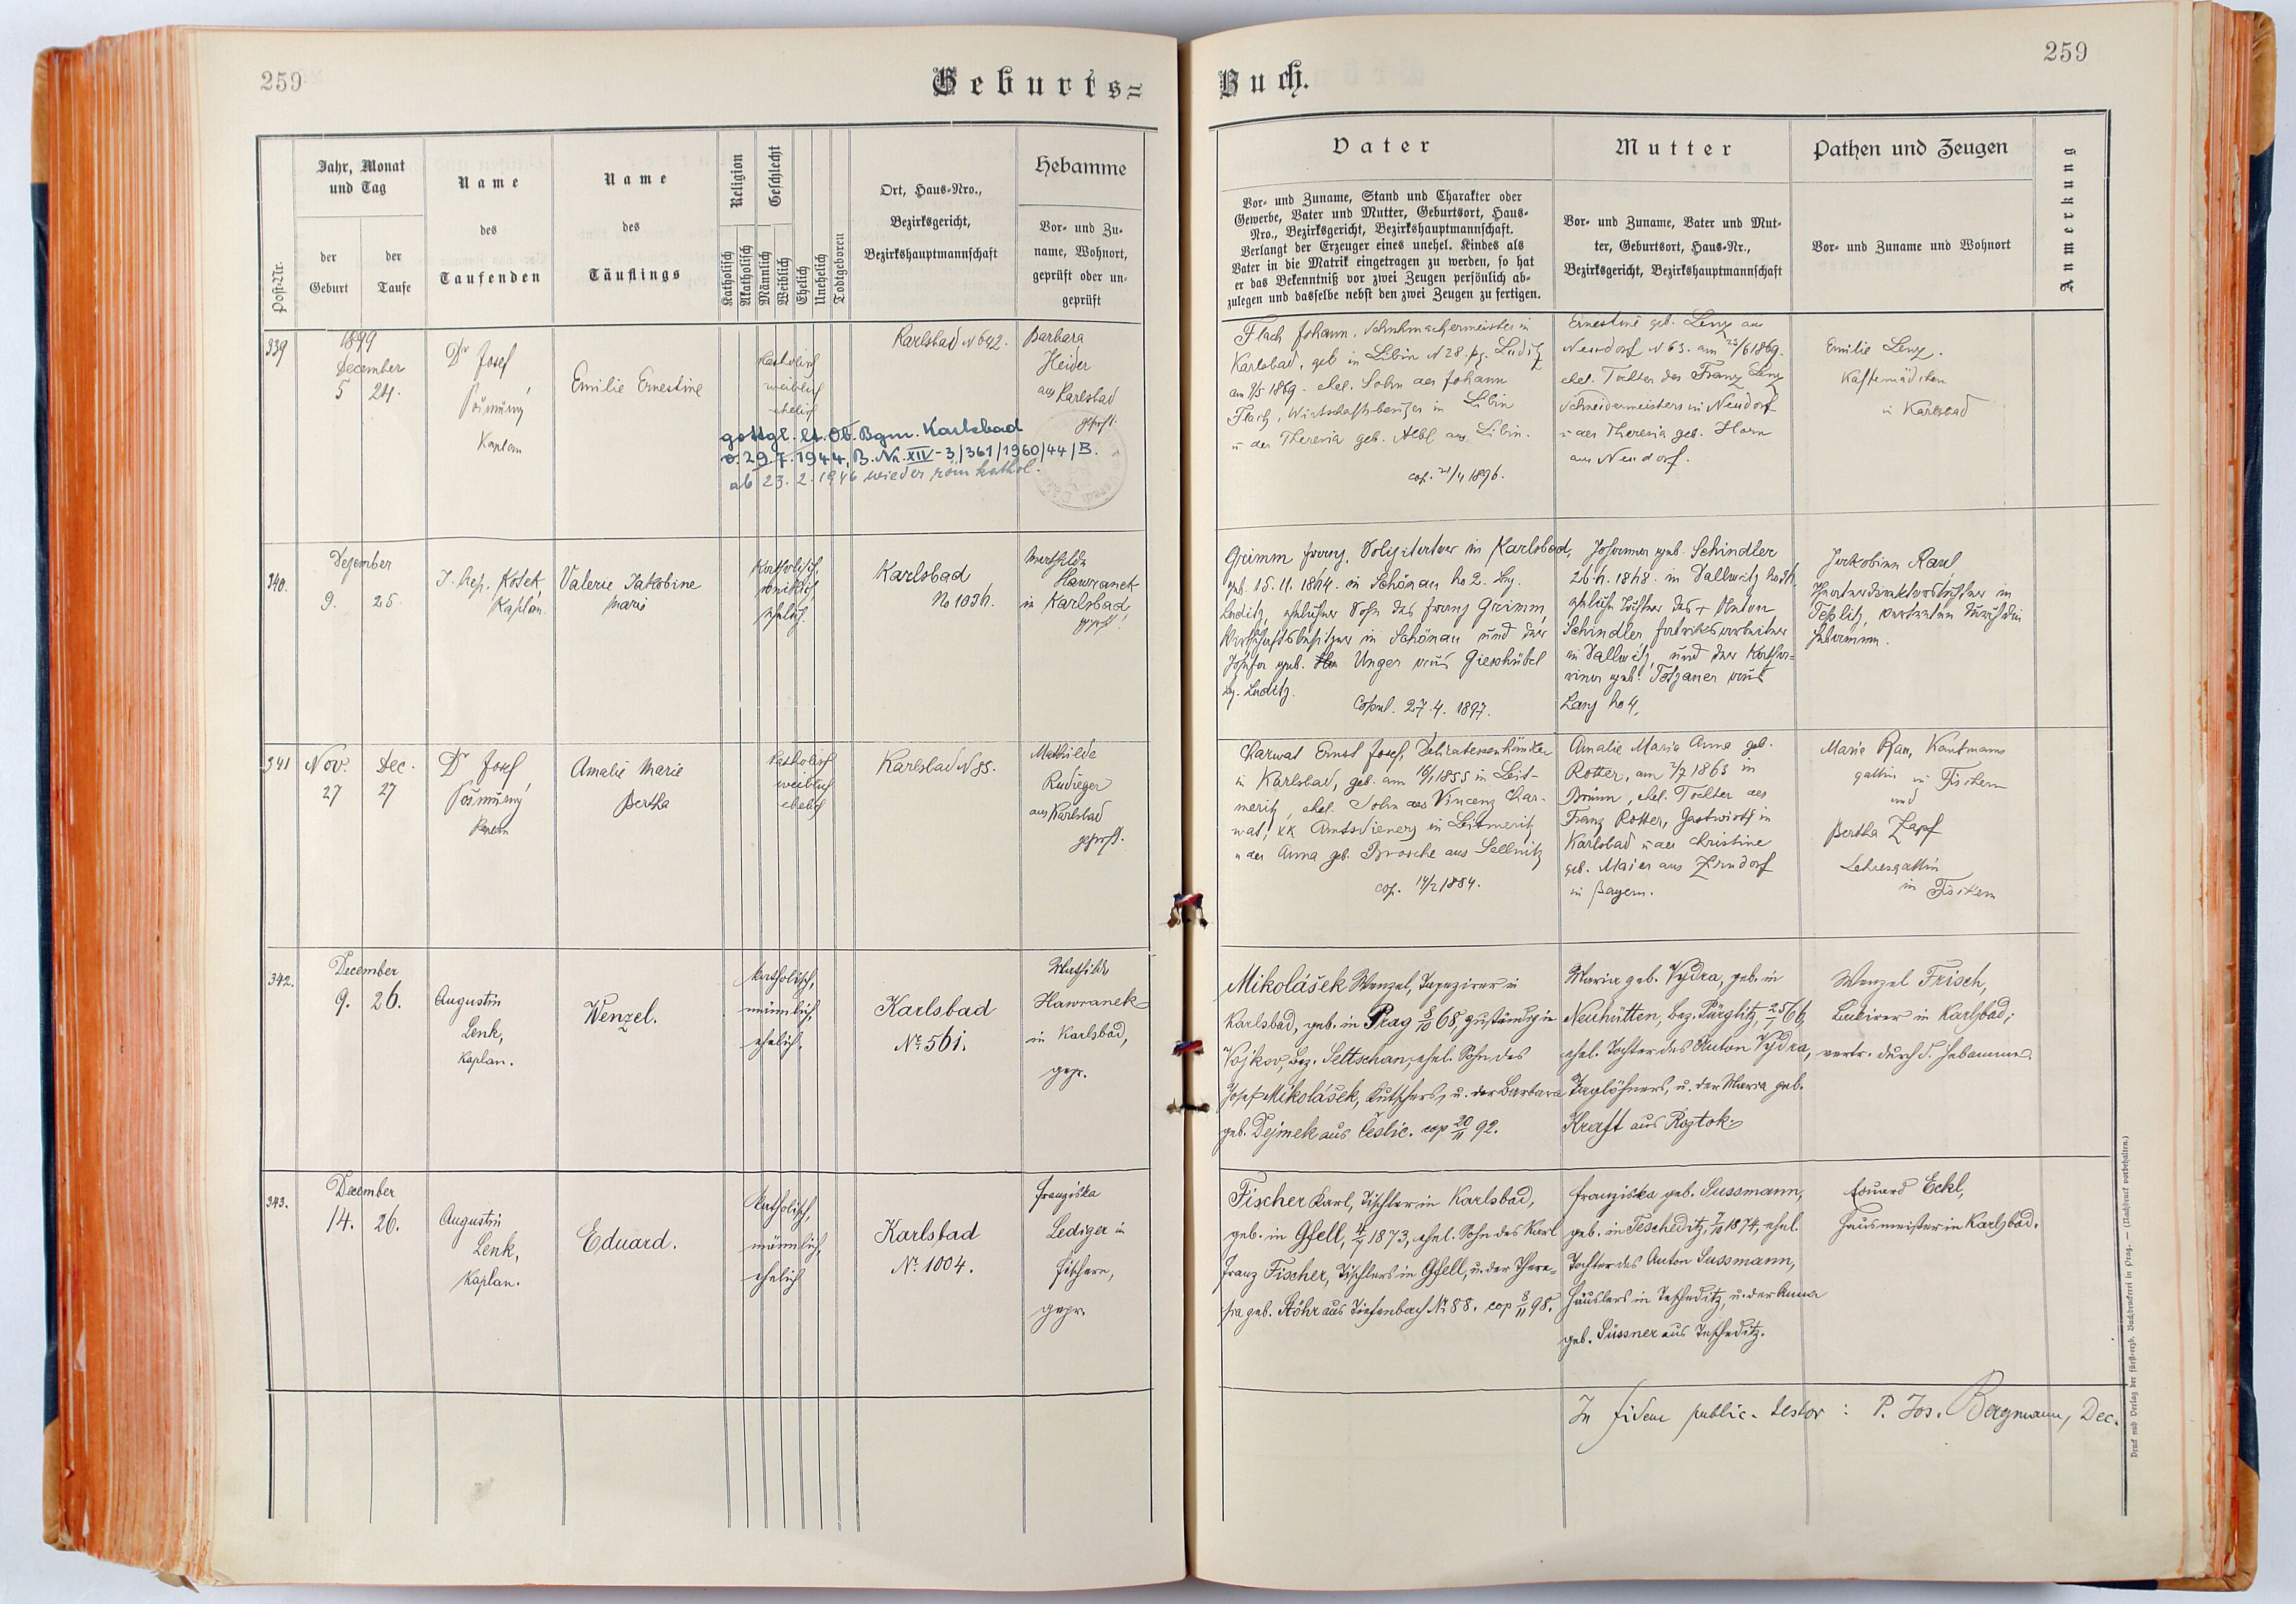 259
Geburts=
Jahr, Monat
und Tag
Name
Name
Religion
Geschlecht
Hebamme
Ort, Haus-Nro.,
Bezirksgericht,
Bezirkshauptmannschaft
des
des
Vor- und Zu-
name, Wohnort,
geprüft oder un-
geprüft
Post-Nr.
der
Geburt
der
Taufe
Taufenden
Täuflings
Katholisch
Akatholisch
Männlich
Weiblich
Ehelich
Unehelich
Todtgeboren
339
1899
December
5 24.
Dr Josef
Kaplan
Emilie Ernestine
katholisch
weiblich
ehelich
Karlsbad N 642.
Barbara
Heider
aus Karlsbad
geprft.
gottgl. lt. Ob. Bgm. Karlsbad
v. 29.7.1944, B. Nr. XIV-3/361/1960/44/B.
ab 23.2.1946 wieder röm kathol.
340.
Dezember
9. 25.
J. Nep. Kosek,
Kaplan.
Valerie Jakobine
Marie
Katholisch,
weiblich
ehelich.
Karlsbad
No 1036.
Mathilda
Hawranek
in Karlsbad,
geprft!
341
Nov. Dec.
27 27
Dr Josef
Kaplan
Amalie Marie
Bertha
katholisch
weiblich
ehelich
Karlsbad N 85.
Mathilde
Rudieger
aus Karlsbad
geprft.
342.
December
9. 26.
Augustin
Lenk,
Kaplan.
Wenzel.
katholisch,
männlich,
ehelich.
Karlsbad
No. 561.
Mathilde
Hawranek
in Karlsbad,
gepr.
343.
December
14. 26.
Augustin
Lenk,
Kaplan.
Eduard.
katholisch,
männlich,
ehelich
Karlsbad
No. 1004.
Franziska
Lediger in
Fischern,
gepr.
259
Buch.
Vater
Mutter
Pathen und Zeugen
Anmerkung
Vor- und Zuname, Stand und Charakter oder
Gewerbe, Vater und Mutter, Geburtsort, Haus-
Nro., Bezirksgericht, Bezirkshauptmannschaft.
Verlangt der Erzeuger eines unehel. Kindes als
Vater in die Matrik eingetragen zu werden, so hat
er das Bekenntniß vor zwei Zeugen persönlich ab-
zulegen und dasselbe nebst den zwei Zeugen zu fertigen.
Vor- und Zuname, Vater und Mut-
ter, Geburtsort, Haus-Nr.,
Bezirksgericht, Bezirkshauptmannschaft
Vor- und Zuname und Wohnort
Flach Johann, Schuhmachermeister in
Karlsbad, geb in Libin N 28. bz. Luditz
am 9/5 1869. ehel. Sohn des Johann
Flach, Wirtschaftsbesitzer in Libin
u der Theresia geb. Albl aus Libin.
cop. 21/11 1896.
Ernestine geb. Lenz aus
Neudorf N 63. am 23/6 1869.
ehel. Tochter des Franz Lenz
Schneidermeisters in Neudorf
u der Theresia geb. Horn
aus Neudorf.
Emilie Lenz.
Kaffemädchen
in Karlsbad
Grimm Franz, Solizitator in Karlsbad,
geb. 15.11.1864. in Schönau No 2. bez.
Luditz, ehelicher Sohn des Franz Grimm,
Wirthschaftsbesitzer in Schönau und der
Josefa geb. Unger aus Gieshübel
bz. Luditz.
Copul. 27.4. 1897.
Johanna geb. Schindler
26.6. 1868. in Dallwitz
eheliche Tochter des + Anton
Schindler Fabriksarbeiter
in Dallwitz, und der Katha-
rina geb. Totzauer aus
Lanz No 4.
Jakobina Raul
in
Teplitz, vertreten durch die
Hebamme.
Charwat Ernst Josef, Delikatessenhändler
in Karlsbad, geb. am 10/1 1855 in Leit-
meritz, ehel. Sohn des Vincenz Char-
wat, kk Amtsdieners in Leitmeritz
u der Anna geb. Brosche aus Sellnitz
cop. 14/2 1884.
Amalie Maria Anna geb.
Rotter, am 2/7 1863 in
Brünn, ehel. Tochter des
Franz Rotter, Gastwirts in
Karlsbad u der Christine
geb. Maier aus Zirndorf
in Bayern.
Marie Rau, Kaufmanns
gattin in Fischern
und
Bertha Zapf
Lehresgattin
in Fischern
Mikolášek Wenzel, Tapezirer in
Karlsbad, geb. in Prag 8/10 68, zuständig in
Vojkov, Bez. Seltschan, ehel. Sohn des
Josef Mikolášek, Kutschers, u. der Barbara
geb. Dejmek aus Čestic. cop 20/11 92.
Maria geb. Vydra, geb. in
Neuhütten, Bez. Pürglitz, 25/1 66,
ehel. Tochter des Anton Vydra,
Taglöhners, u. der Maria geb.
Kraft aus Roztok.
Wenzel Frisch,
Lakirer in Karlsbad;
vertr. durch d. Hebamme.
Fischer Karl, Tischler in Karlsbad,
geb. in Gfell, 4/7 1873, ehel. Sohn des Karl
Franz Fischer, Tischlers in Gfell, u. der There-
sia geb. Stöhr aus Tiefenbach No. 88. cop 8/11 98.
Franziska geb. Sussmann,
geb. in Tescheditz, 7/10 1874, ehel.
Tochter des Anton Sussmann,
Häuslers in Tescheditz, u. der Anna
geb. Süssner aus Tescheditz.
Eduard Eckl,
Hausmeister in Karlsbad.
In fidem public. testor : P. Jos. Bergmann, Dec.
Druck und Verlag der fürst-erzb. Buchdruckerei in Prag. — (Nachdruck vorbehalten.)